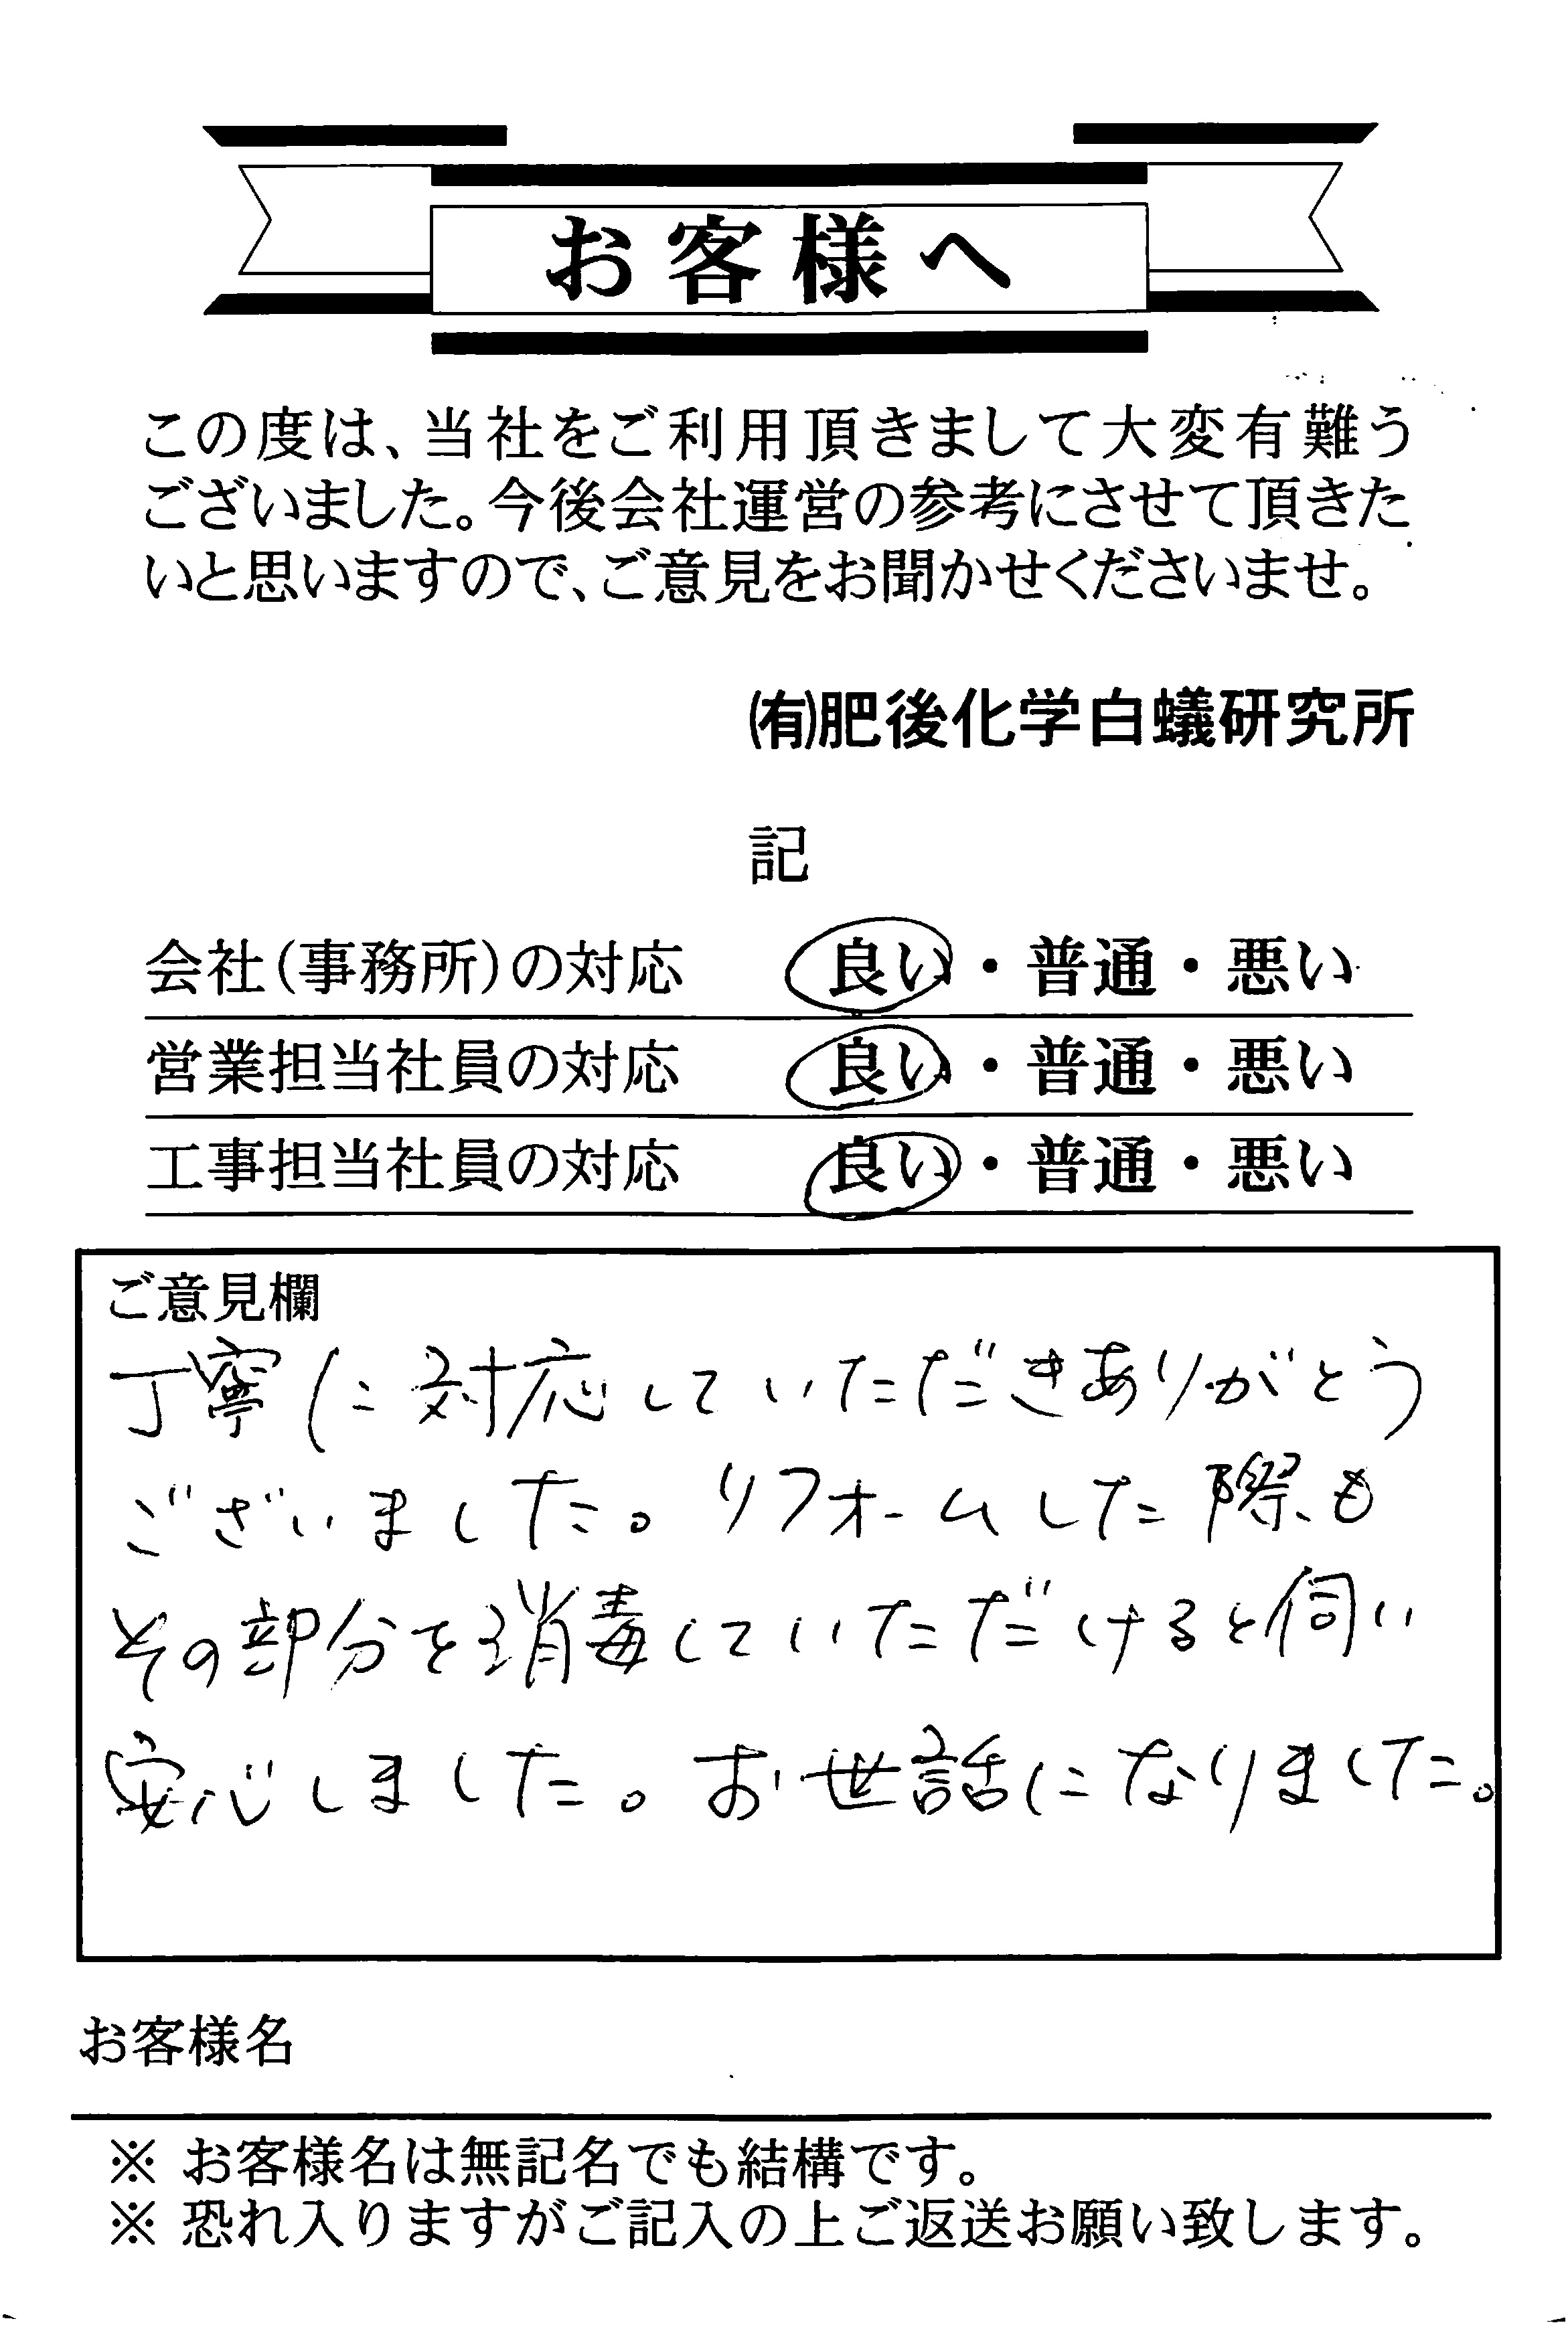 お客様へ
この度は、当社をご利用頂きまして大変有難う
ございました。今後会社運営の参考にさせて頂きた
いと思いますので、ご意見をお聞かせくださいませ。
㈲肥後化学白蟻研究所
記
会社(事務所)の対応 良い・普通・悪い
営業担当社員の対応 良い・普通・悪い
工事担当社員の対応 良い・普通・悪い
ご意見欄
丁寧に対応していただきありがとう
ございました。リフォームした際も
その部分を消毒していただけると伺い
安心しました。お世話になりました。
お客様名
※ お客様名は無記名でも結構です。
※ 恐れ入りますがご記入の上ご返送お願い致します。